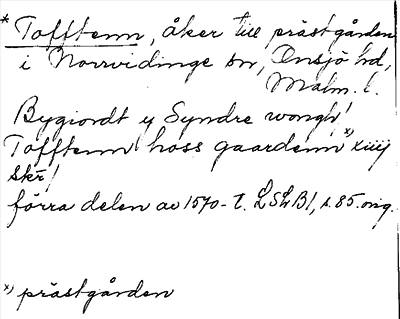 * Tofftenn, åker till prästgården
i Norrvidinge sn, Onsjö hd,
Malm. l.
Bygiordt y Syndre wongh!
Tofftenn hoss gaardenn x) xiiij
skr!
förra delen av 1570-t. LSLB1, s. 85. orig.
x) prästgården